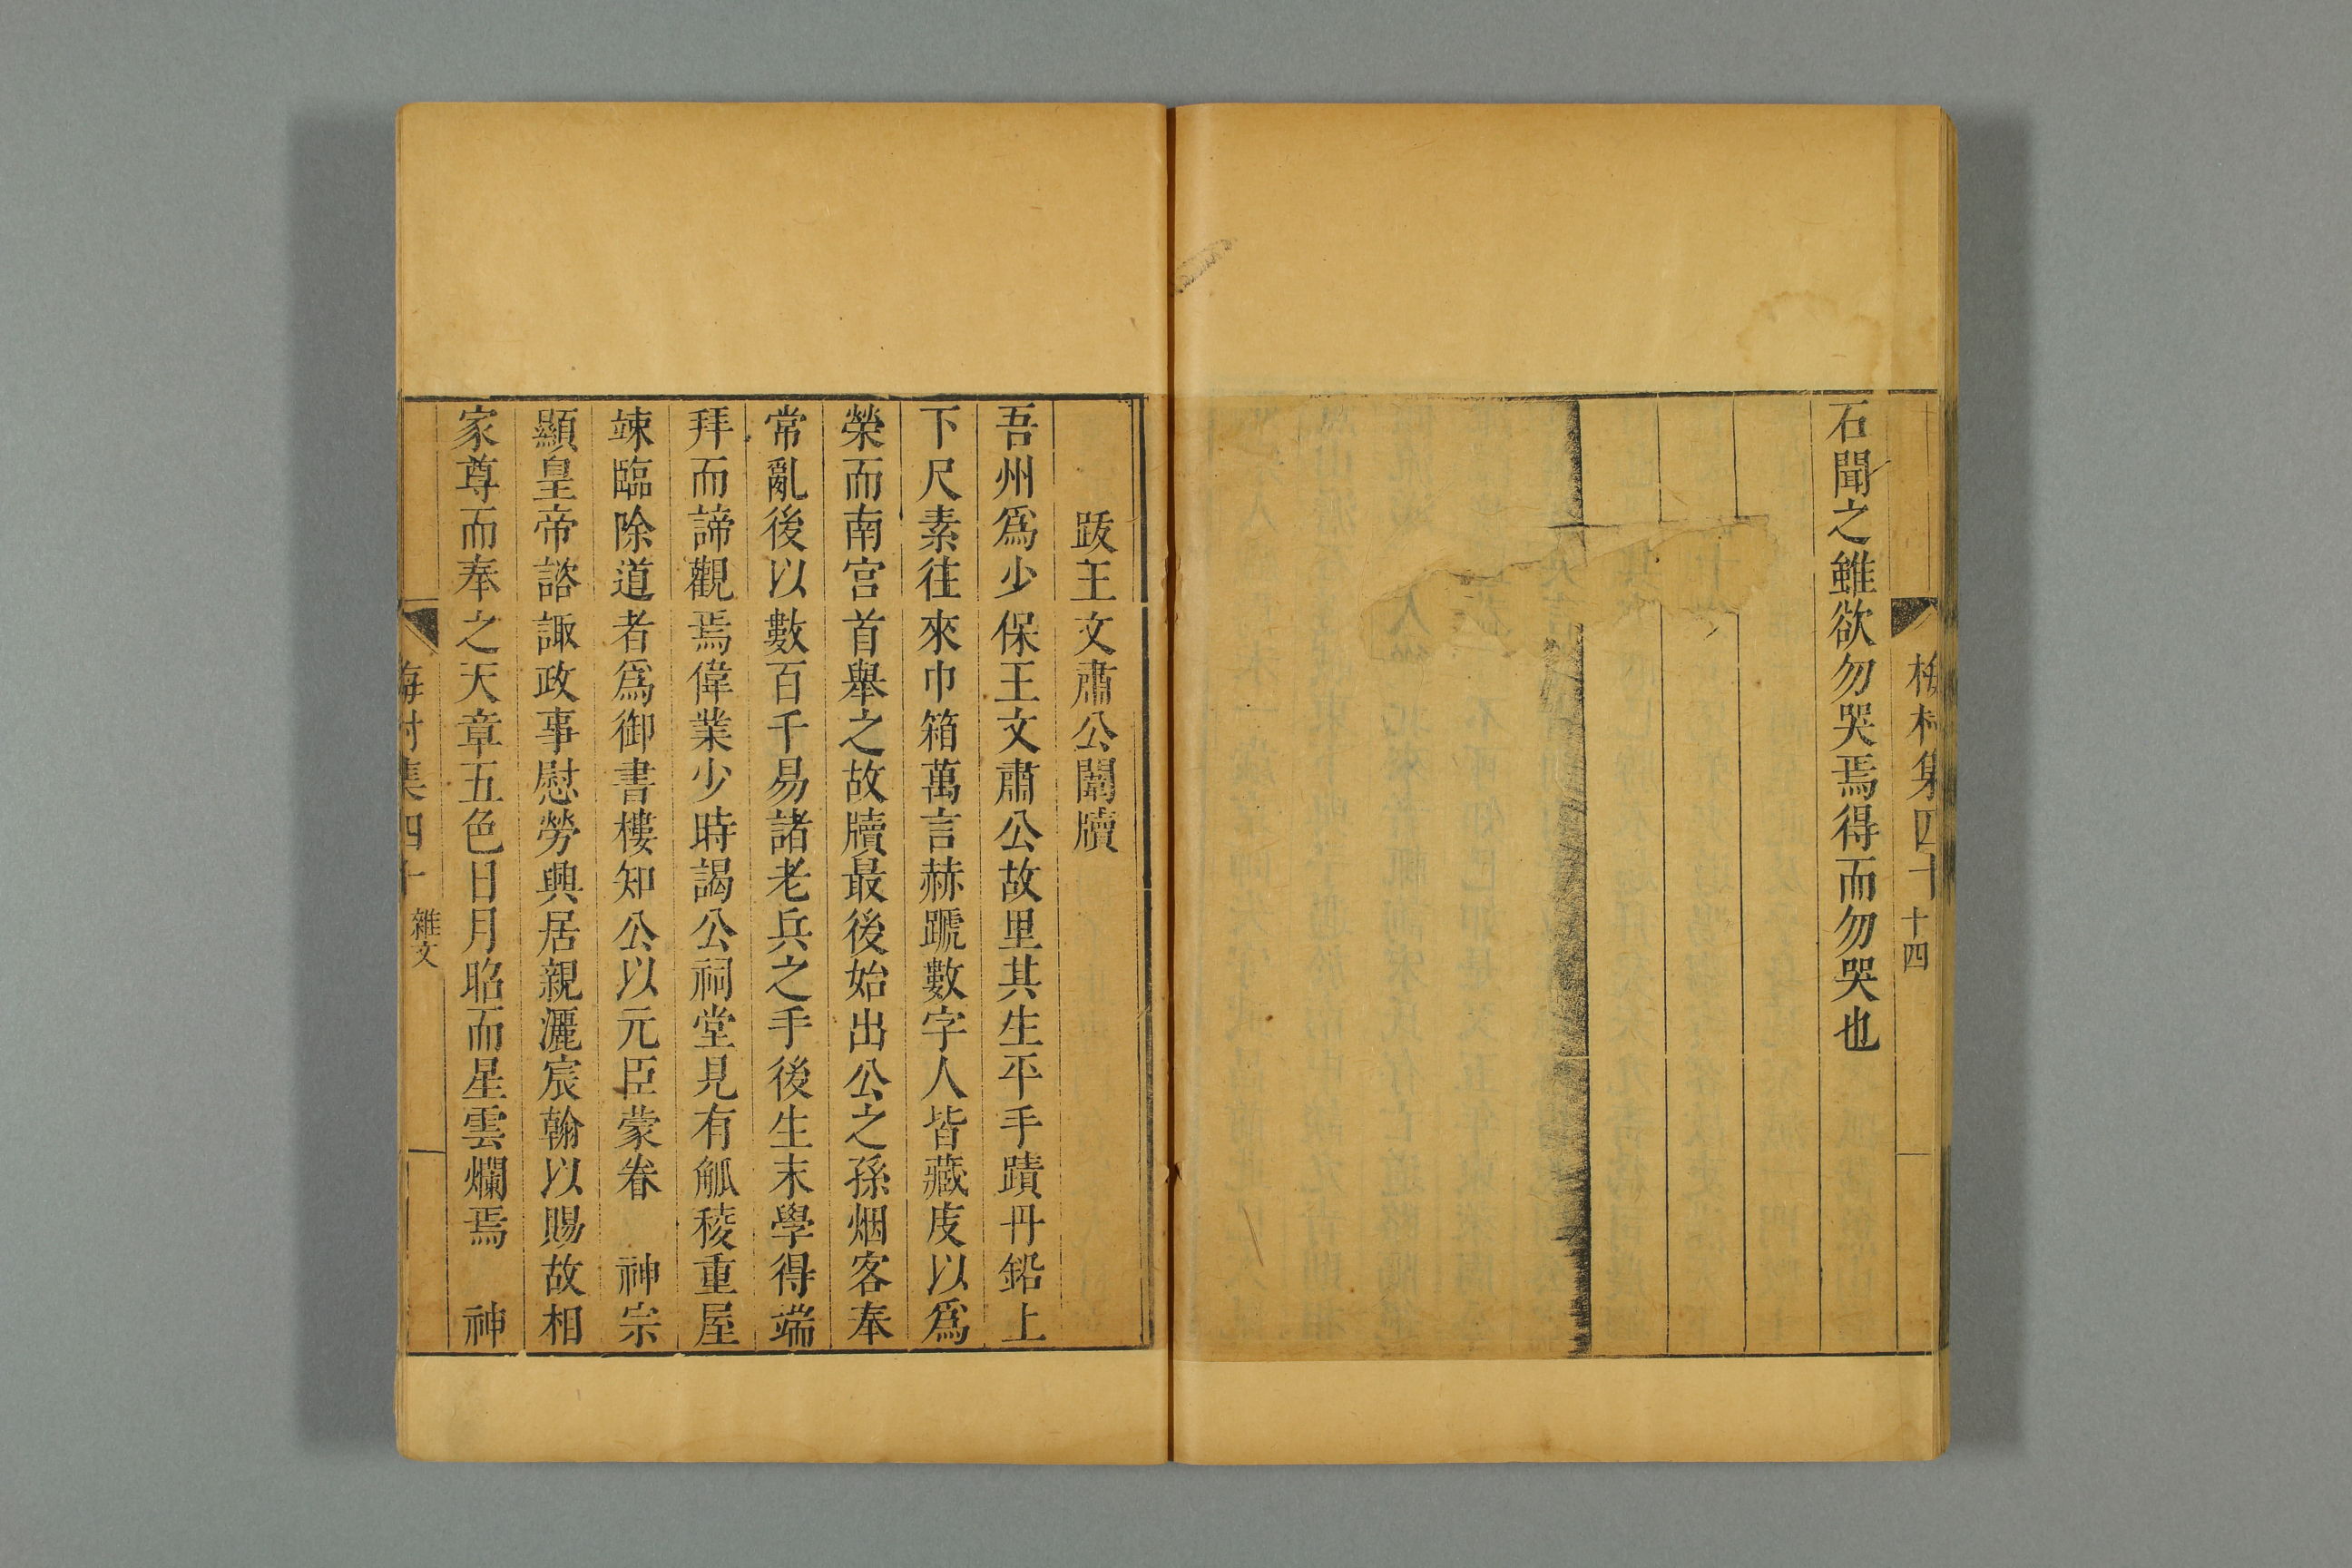 梅村集四十
十四
石聞之雖欲勿哭焉得而勿哭也
跋王文肅公闈牘
吾州爲少保王文肅公故里其生平手蹟丹鉛上
下尺素往來巾箱萬言赫蹏數字人皆藏庋以爲
榮而南宮首舉之故牘最後始出公之孫烟客奉
常亂後以數百千易諸老兵之手後生末學得端
拜而諦觀焉偉業少時謁公祠堂見有觚稜重屋
竦臨除道者爲御書樓知公以元臣蒙眷　神宗
顯皇帝諮諏政事慰勞興居親灑宸翰以賜故相
家尊而奉之天章五色日月昭而星雲爛焉　神
梅村集四十
雜文